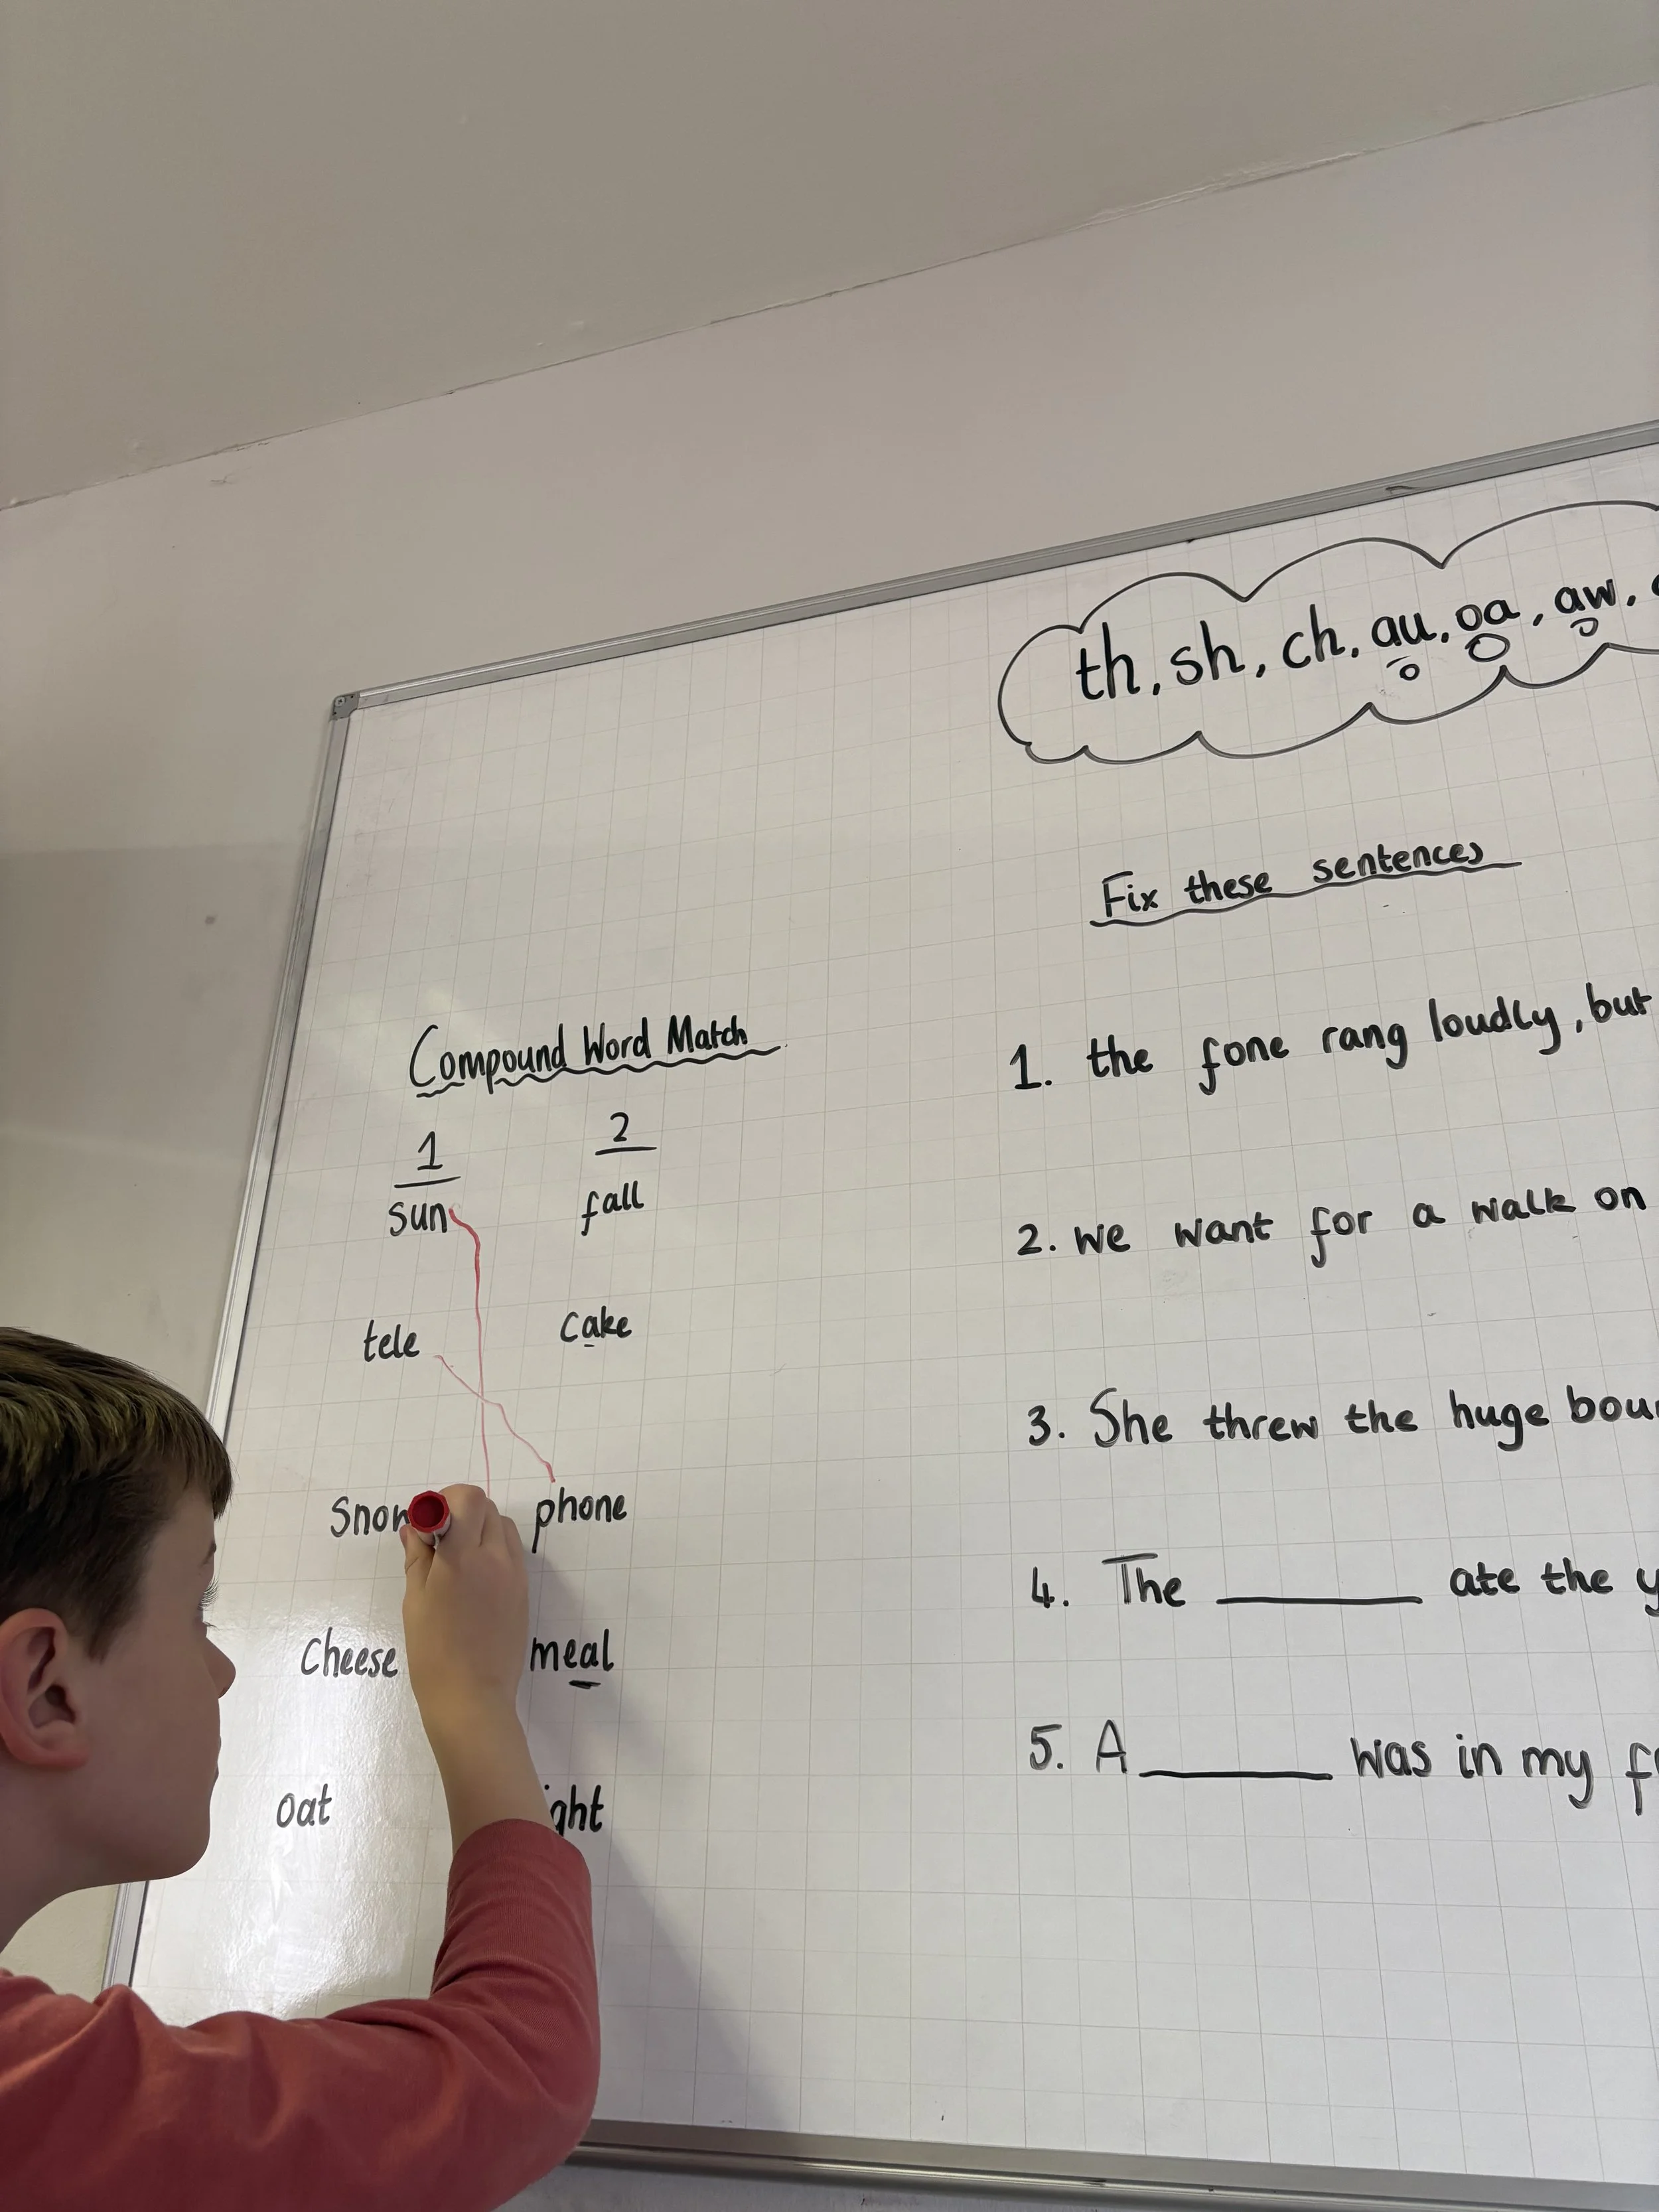 th, sh, ch, au, oa, aw,
Fix these sentences
Compound Word Match
1 2
sun fall
tele cake
phone
Cheese meal
oat
1. the fone rang loudly, but
2. we want for a walk on
3. She threw the huge
4. The ______ ate the
5. A ______ was in my